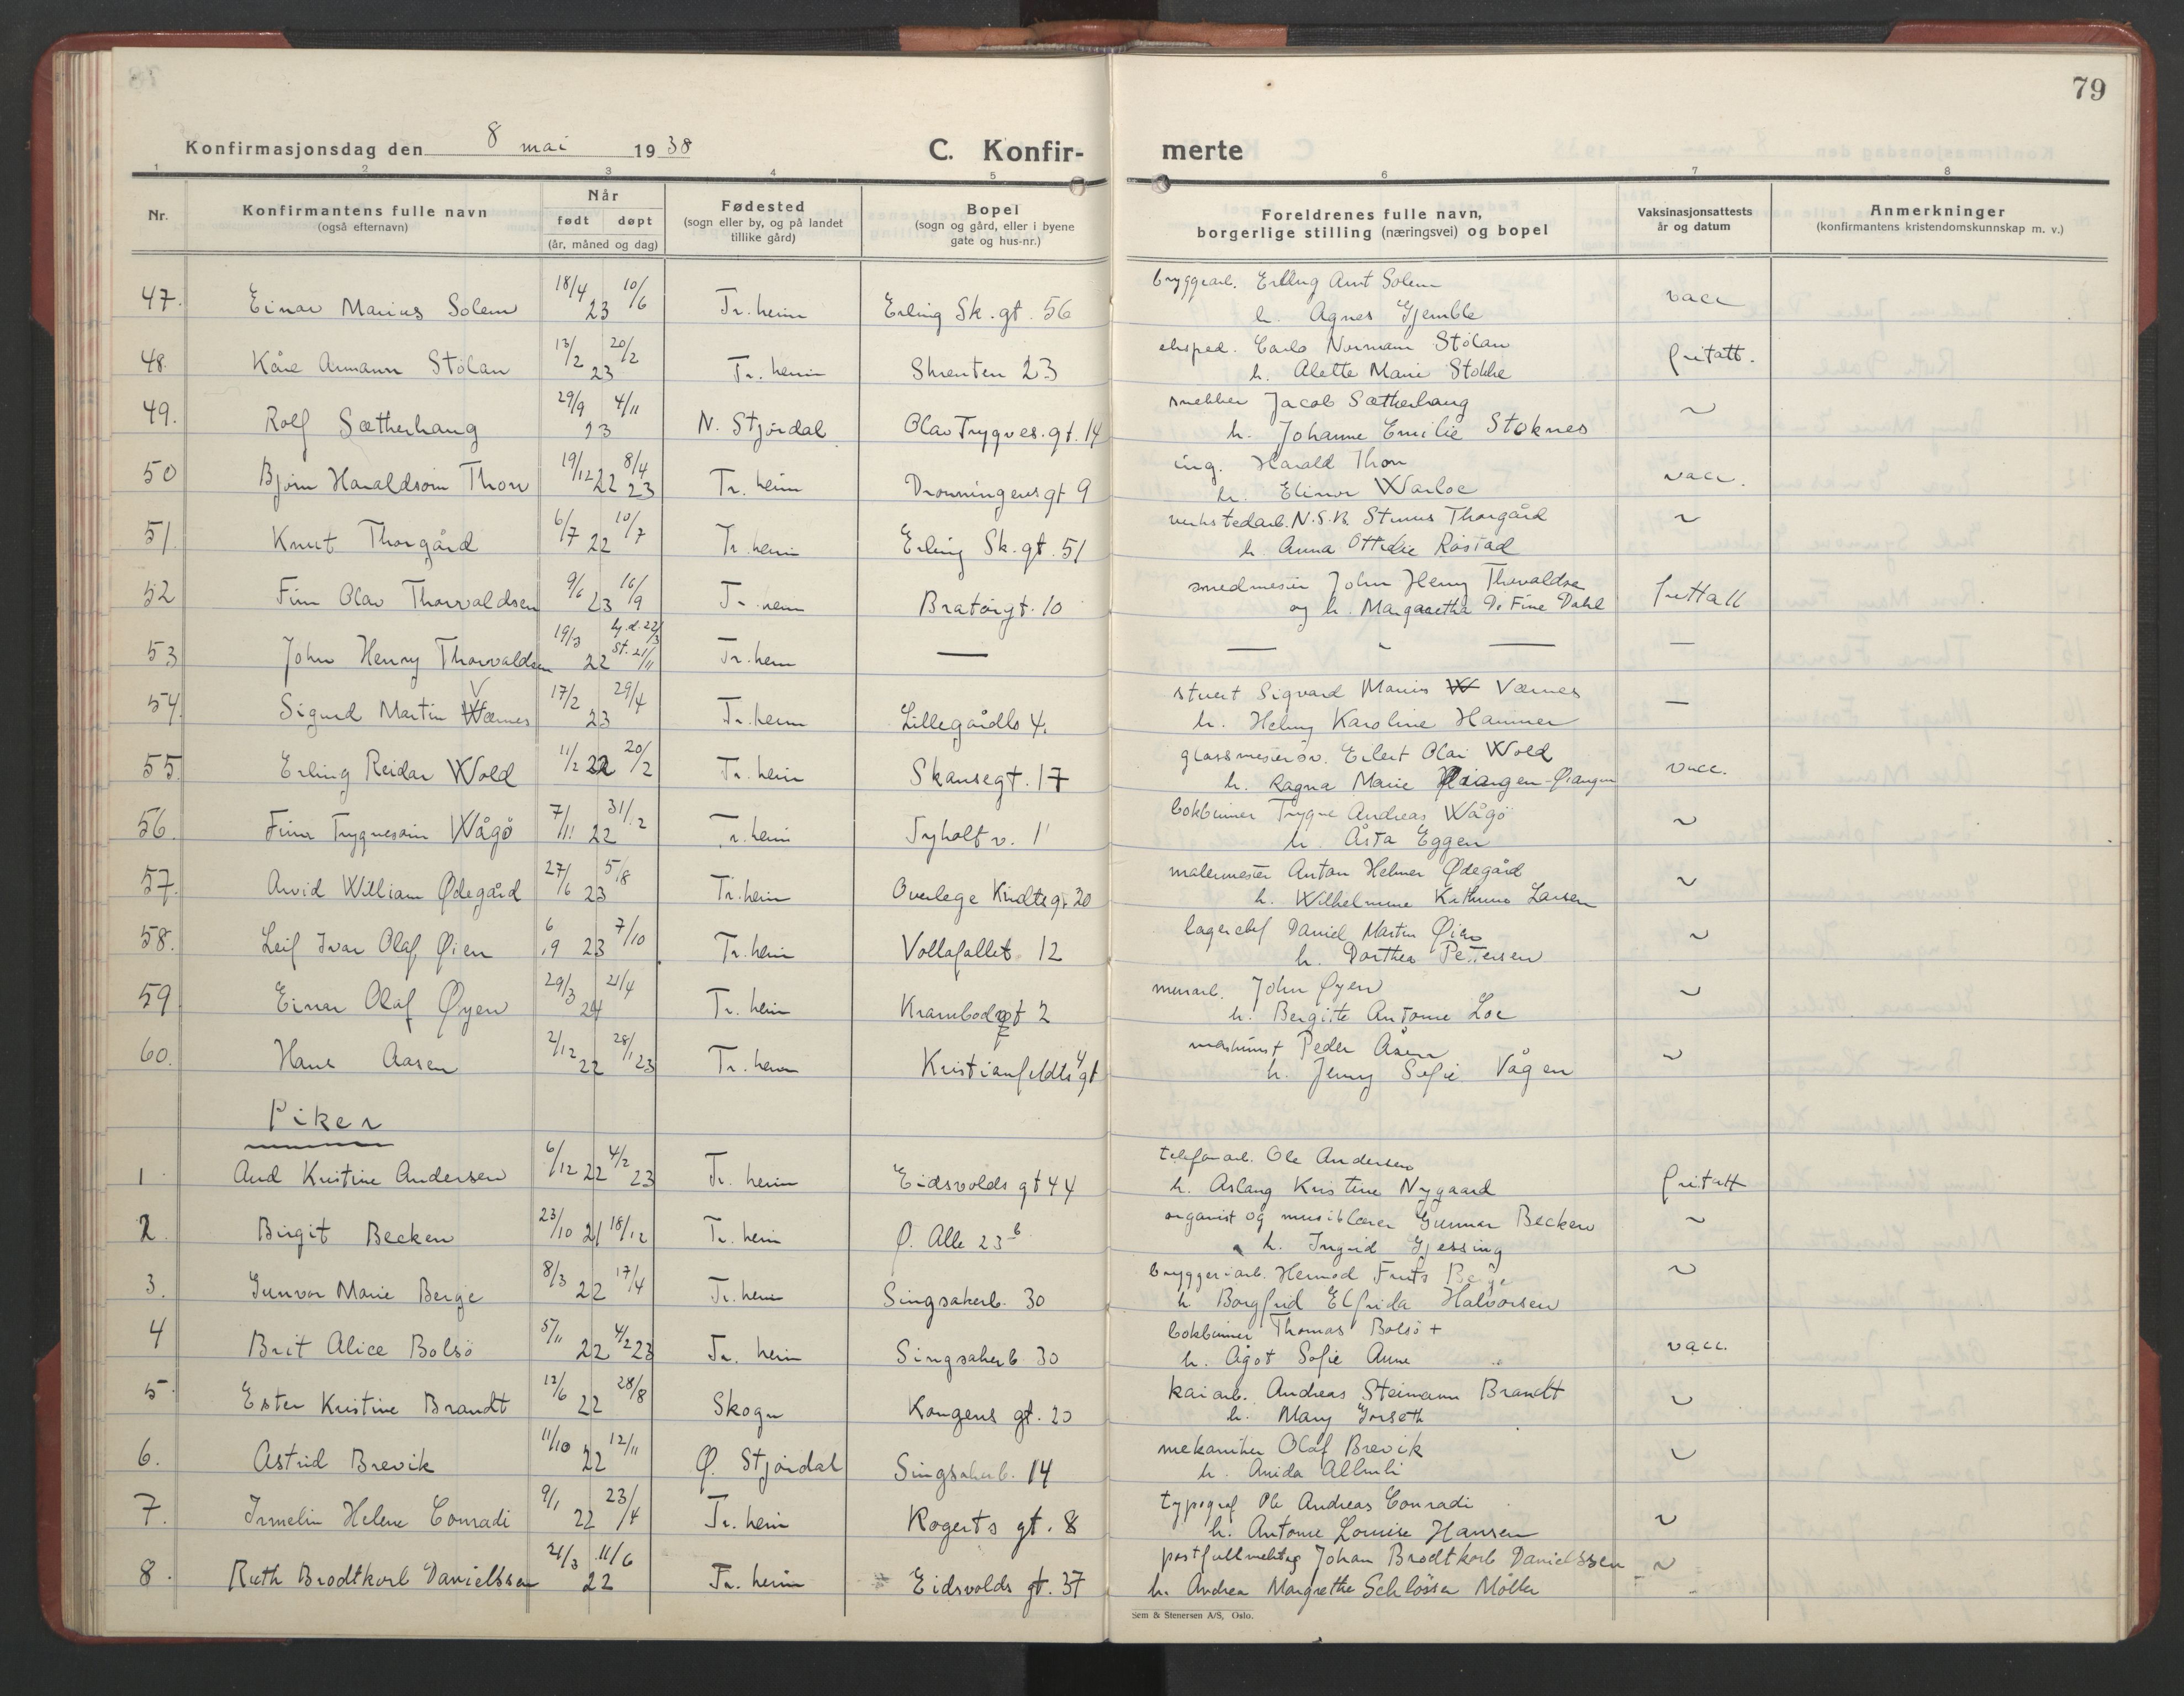 79
Konfirmasjonsdag den 8 mai 1938
C. Konfir- merte
1 2 3 4 5 6 7 8
Nr.
Konfirmantens fulle navn
(også efternavn)
Når
født døpt
(år, måned og dag)
Fødested
(sogn eller by, og på landet
tillike gård)
Bopel
(sogn og gård, eller i byene
gate og hus-nr.)
Foreldrenes fulle navn,
borgerlige stilling (næringsvei) og bopel
Vaksinasjonsattests
år og datum
Anmerkninger
(konfirmantens kristendomskunnskap m. v.)
47. Einar Marius Solem 18/4 23 10/6 Tr.heim Erling Sk. gt. 56 bryggearb. Erling Arnt Solem vacc
h. Agnes Gjemble
48. Kåre Armann Stölan 13/2 23 20/2 Tr. heim Skrenten 23 eksped. Carlo Normann Stölan fritatt.
h. Alette Marie Stokke
49. Rolf Sætherhaug 29/9 23 4/11 N. Stjördal Olav Trygves. gt. 14 snekker Jacob Sætherhaug ~
h. Johanne Emilie Stoknes
50 Bjørn Haraldsøn Thon 19/12 22 8/4 23 Tr. heim Dronningensgt 9 ing. Harald Thon vacc.
h. Elinor Warloe
51. Knut Thorgård 6/7 22 10/7 Tr. heim Erling Sk. gt. 51 verkstedarb. N.S.B. Thorgård ~
h. Anna Ottilie Röstad
52 Finn Olav Thorvaldsen 9/6 23 16/9 Tr. heim Bratörgt. 10 smedmester John Henry Thorvaldsen fritatt
og h. Margaretha De Fine Dahl
53 John Henry Thorvaldsen 19/3 22 hj.d. 22/3 St. 21/11 Tr. heim — — " — —
54. Sigurd Martin Værnes 17/2 23 29/4 Tr. heim Lillegårdb 4. stuert Sigvard Marius Værnes —
h. Helmy Karoline Hammer
55. Erling Reidar Wold 11/2 22 20/2 Tr. heim Skansegt. 17 glassmestersv. Eilert Olai Wold vacc.
h. Ragna Marie Øiangen
56. Finn Trygvesøn Wågö 7/11 22 31/12 Tr. heim Tyholt v. 1 bokbinner Trygve Andreas Wågö ~
h. Åsta Eggen
57. Arvid William Ødegård 27/6 23 5/8 Tr. heim Overlege Kindts gt 20 malermester Anton Helmer Ødegård ~
h. Wilhelmine Larsen
58. Leif Ivar Olaf Øien 6/9 23 7/10 Tr. heim Vollafallet 12 lagerchef Daniel Martin Øien ~
h. Dorthea Pettersen
59 Einar Olaf Øyen 29/3 24 21/4 Tr. heim Krambodgt 2 murarb. John Øyen ~
h. Bergitte Antonie Loe
60. Hans Aasen 2/12 22 28/1 23 Tr. heim Kristianfeldts gt 4 maskinist Peder Åsen ~
h. Jenny Sofie Vågen
Piker
1 Aud Kristine Andersen 6/12 22 4/2 23 Tr. heim Eidsvolds gt 44 telefonarb. Ole Andersen fritatt
h. Aslaug Kristine Nygaard
2. Birgit Becken 23/10 21 18/12 Tr. heim Ø. Alle 23 b organist og musiklærer Gunnar Becken ~
h. Ingrid Gjessing
3. Gunvor Marie Berge 8/3 22 17/4 Tr. heim Singsakerb. 30 bryggeriarb. Hermod Berge ~
h. Borgfrid Elfrida Halvorsen
4 Brit Alice Bolsö 5/11 22 4/2 23 Tr. heim Singsakerb 30 bokbinner Thomas Bolsö + vacc.
h. Ågot Sofie Aune
5 Ester Kristine Brandt 12/6 22 28/8 Skogn Kongens gt. 20 kaiarb. Andreas Steimann Brandt ~
h. Mary Forseth
6. Astrid Brevik 11/10 22 12/11 Ø. Stjördal Singsakerb. 14 mekaniker Olaf Brevik ~
h. Anida Allmli
7. Irmelin Helene Conradi 9/1 22 23/4 Tr. heim Rogerts gt. 8 typograf Ole Andreas Conradi ~
h. Antonie Lovise Hansen
8. Ruth Brodtkorb Danielssen 21/3 22 11/6 Tr. heim Eidsvolds gt. 37 postfullmektig Johan Brodtkorb Danielssen ~
h. Andrea Margrethe Schlösser Möller
Sem & Stenersen A/S, Oslo.